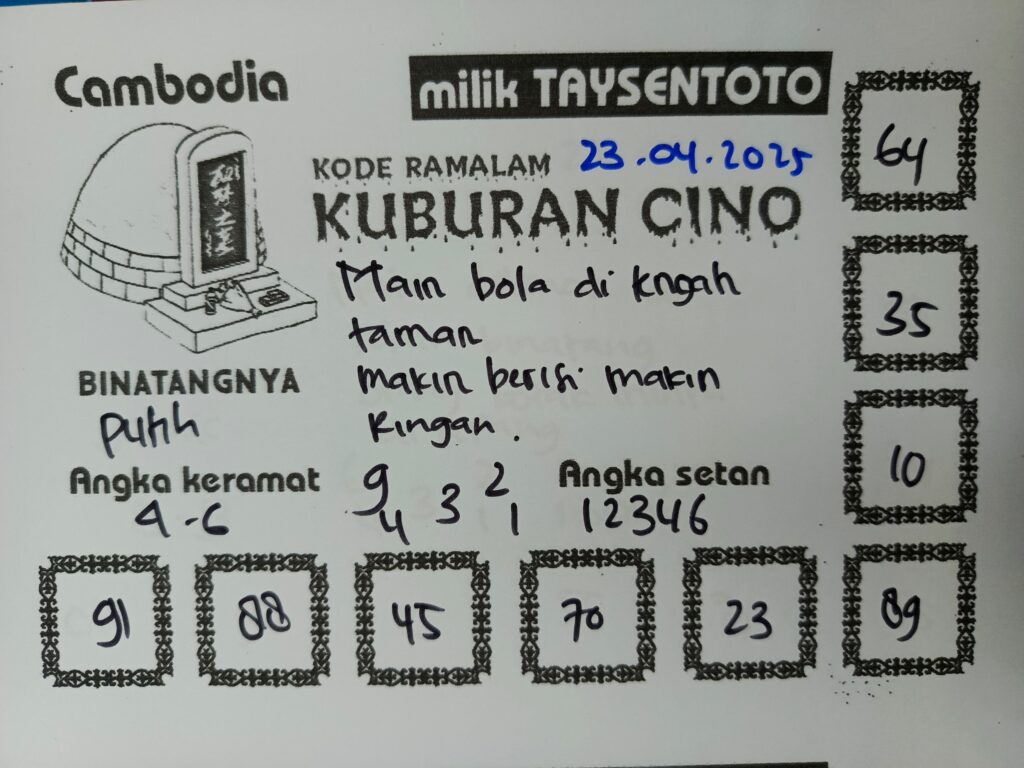 Cambodia
milik TAYSENTOTO
KODE RAMALAM 23.04.2025
KUBURAN CINO
Main bola di tengah
taman
makin berisi makin
ringan.
BINATANGNYA
putih
Angka keramat
4-6
9 3 2
4 1
Angka setan
12346
64
35
10
91
88
45
70
23
89